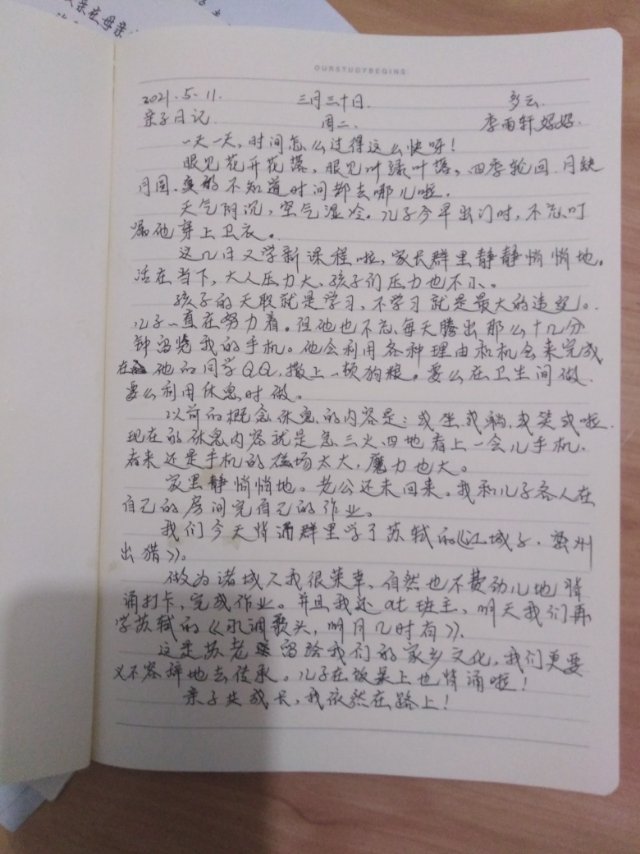 OURSTUDYBEGINS
2021.5.11. 三月三十日. 多云.
亲子日记 周二. 李雨轩妈妈.
一天一天,时间怎么过得这么快呀!
眼见花开花落,眼见叶绿叶落,四季轮回.月缺
月圆.不知道时间都去哪儿啦.
天气阴沉,空气湿冷.儿子今早出门时,不忘叮
嘱他穿上卫衣。
这几日又学新课程啦,家长群里静静悄悄地。
活在当下,大人压力大,孩子们压力也不小.
孩子的天职就是学习,不学习就是最大的违纪。
儿子一直在努力着.但他也不忘每天腾出那么十几分
钟留览我的手机。他会利用各种理由和机会来完成
在他的同学QQ,撒上一顿狗粮.要么在卫生间做.
要么利用休息时做。
以前的概念休息的内容是:或坐或躺.或笑或啦.
现在的休息内容就是急三火四地看上一会儿手机.
看来还是手机的磁场太大,魔力也大。
家里静悄悄地.老公还未回来.我和儿子各人在
自己的房间完自己的作业。
我们今天情诵群里学了苏轼的《江城子.密州
出猎》。
做为诸城人我很荣幸,自然也不费劲儿地背
诵打卡,完成作业。并且我还at班主,明天我们再
学苏轼的《水调歌头,明月几时有》.
这是苏老留给我们的家乡文化,我们更要
义不容辞地去传承。儿子在饭桌上也情诵啦!
亲子共成长,我依然在路上!